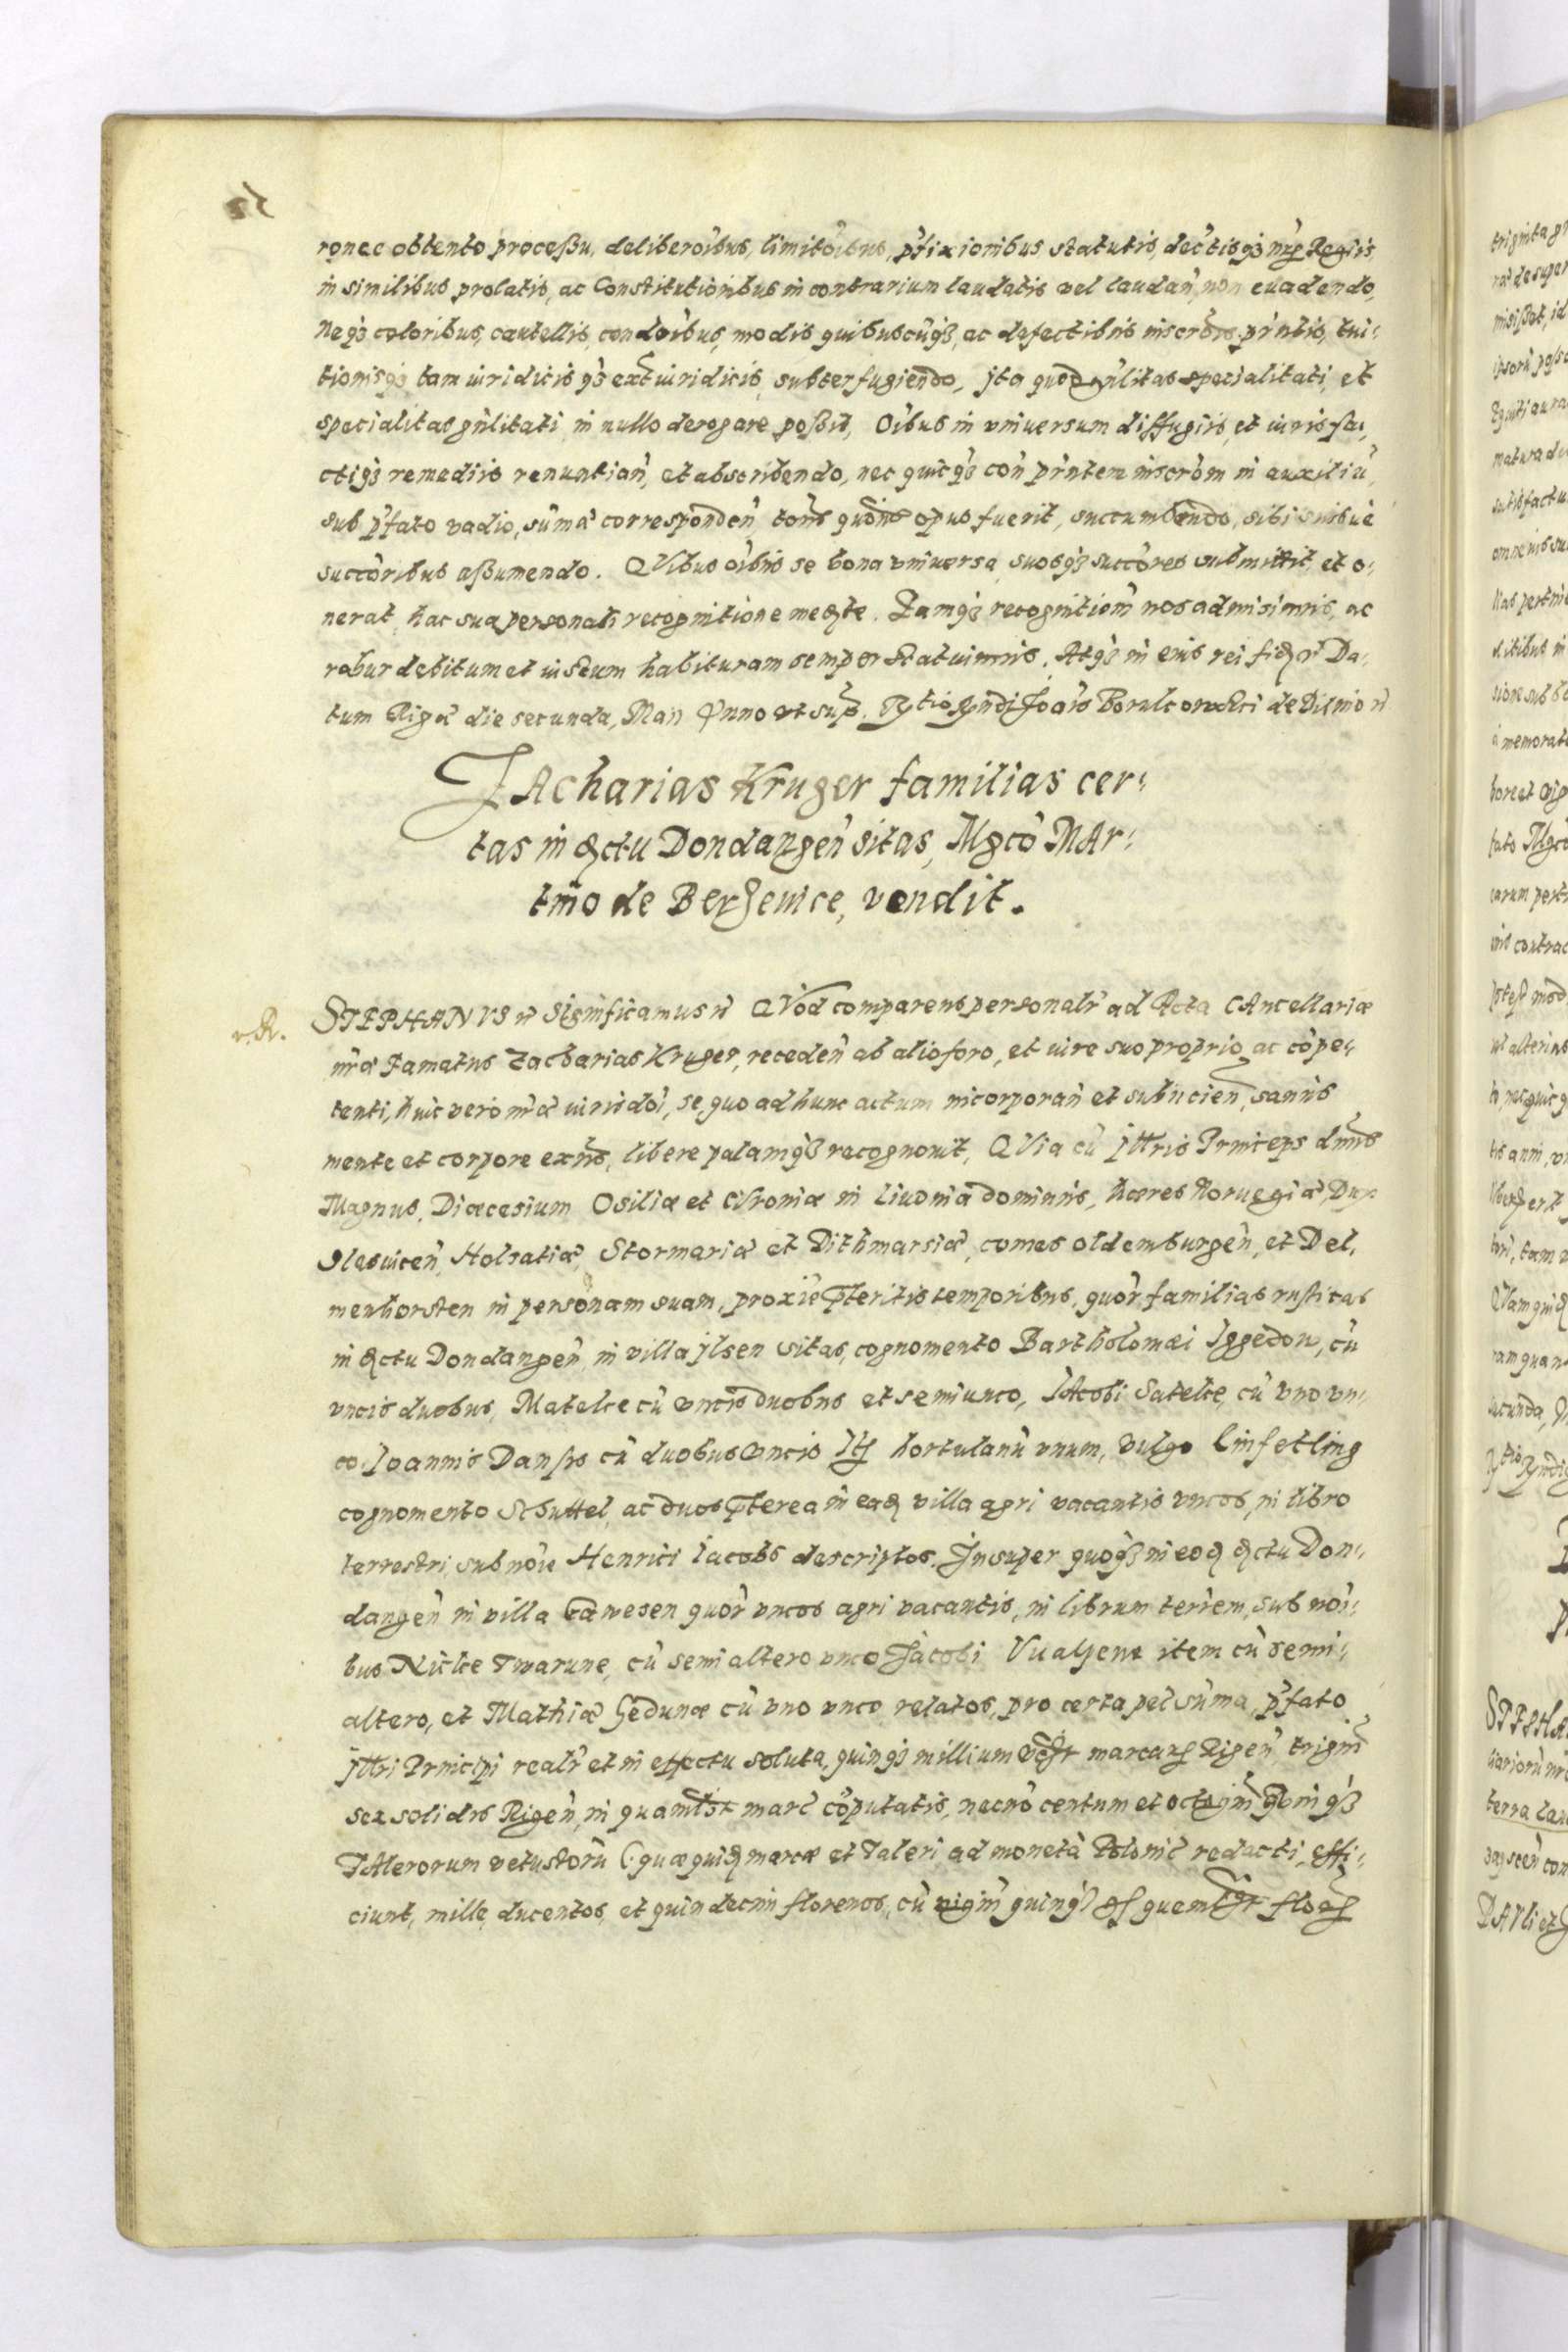 ronec obtento processu, deliberoibus, limitoibus, pfixionibus statutis, dectisq3 nrp Regiis
in similibus prolatis, ac Constitutionibus in contrarium laudatis vel laudan, non euadendo,
neq3 coloribus, cautellis, condoibus, modis quibuscuq3, ac defectibus inscrois pintis, tui:
tionisq3 tam iuridicis q3 ext iuridicis, subterfugiendo, ita quod gnlitas specialitati, et
specialitas gnlitati, in nullo derogare possit, Oibus in vniuersum diffugiis, et iuris fa,
ctiq3 remediis renuntian, et abscribendo, nec quicq3 con pintem inscrom in auxiliu,
sub pfato vadio, suma corresponden tons quons opus fuerit, succumbendo, sibi suisue
succoribus assumendo. QVibus oibus se bona vniuersa, suosq3 succores submittit, et o:
nerat, hac sua personali recognitione mediante. Eamq3 recognitiom nos admisimus, ac
robur debitum et iustum habituram semper statuimus. Atq3 in eius rei fidem Da:
tum Riga die secunda, Maii Anno vt sup.
ZAcharias Kruger familias cer:
tas in dctu Dondangen sitas, Mgco MAr:
tino de Berzeuice, vendit.
v. R.
STEPHANVS Significamus QVod comparens personalr ad Acta CAncellariæ
nræ Famatus Zacharias Kruger, receden ab alio foro, et iure suo proprio ac cope:
tenti, huic vero nræ iurisdoi, se, quo ad hunc actum incorporan et subiicien, sanus
mente et corpore exns, libere palamq3 recognouit, QVia cu Illris Princeps dnns
Magnus, Diœcesium Osiliæ et Curoniæ in Liuonia dominus, hæres Noruegiæ, Dux
Slesuicen, Holsatiæ, Stormariæ et Dithmarsiæ, comes oldemburgen, et Del,
menhorsten in personam suam, proxie pteritis temporibus, quor familias rusticas
in dctu Dondangen, in villa jlsen sitas, cognomento Bartholomæi Iggedow, cu
vncis duobus, Matelce cu vncis duobus et semiunco, IAcobi Satelce, cu vno vn:
co, Ioannis Dansss cu duobus vncis Ite hortulanu vnum, vulgo Einfetling
cognomento Schuttel, ac duos pterea in ead villa agri vacantis vncos, in libro
terrestri, sub noie Henrici Iacobs descriptos. Insuper quoq3 in eod dctu Don:
dangen in villa Cawesen quor vncos agri vacantis, in librum terrem, sub noi:
bus Nicke Twarune, cu semialtero vnco Jacobi Vualzene item cu semi:
altero, et Mathiæ Gedunæ cu vno vnco relatos, pro certa pec suma, pfato
Illri Principi realr et in effectu soluta, quinq3 millium marcarum Rigen, trigin
sex solidis Rigen, in quamlibet marc coputatis, necno centum et octogin quinq3
TAlerorum vetustoru (: quæ quid marcæ et Taleri ad moneta Polonic redacti, effi:
ciunt, mille, ducentos, et quindecim florenos, cu vigin quinq3 quemlibet